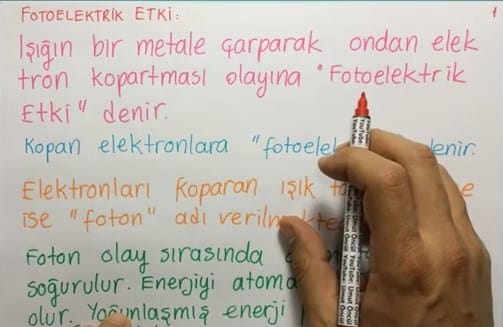 FOTOELEKTRİK ETKİ: 1
Işığın bir metale çarparak ondan elek
tron kopartması olayına "Fotoelektrik
Etki" denir.
Kopan elektronlara "fotoele denir.
Elektronları koparan ışık
ise "foton" adı
Foton olay sırasında
soğurulur. Enerjiyi
olur. Yoğunlaşmış enerji
YouTube: Umut Öncül